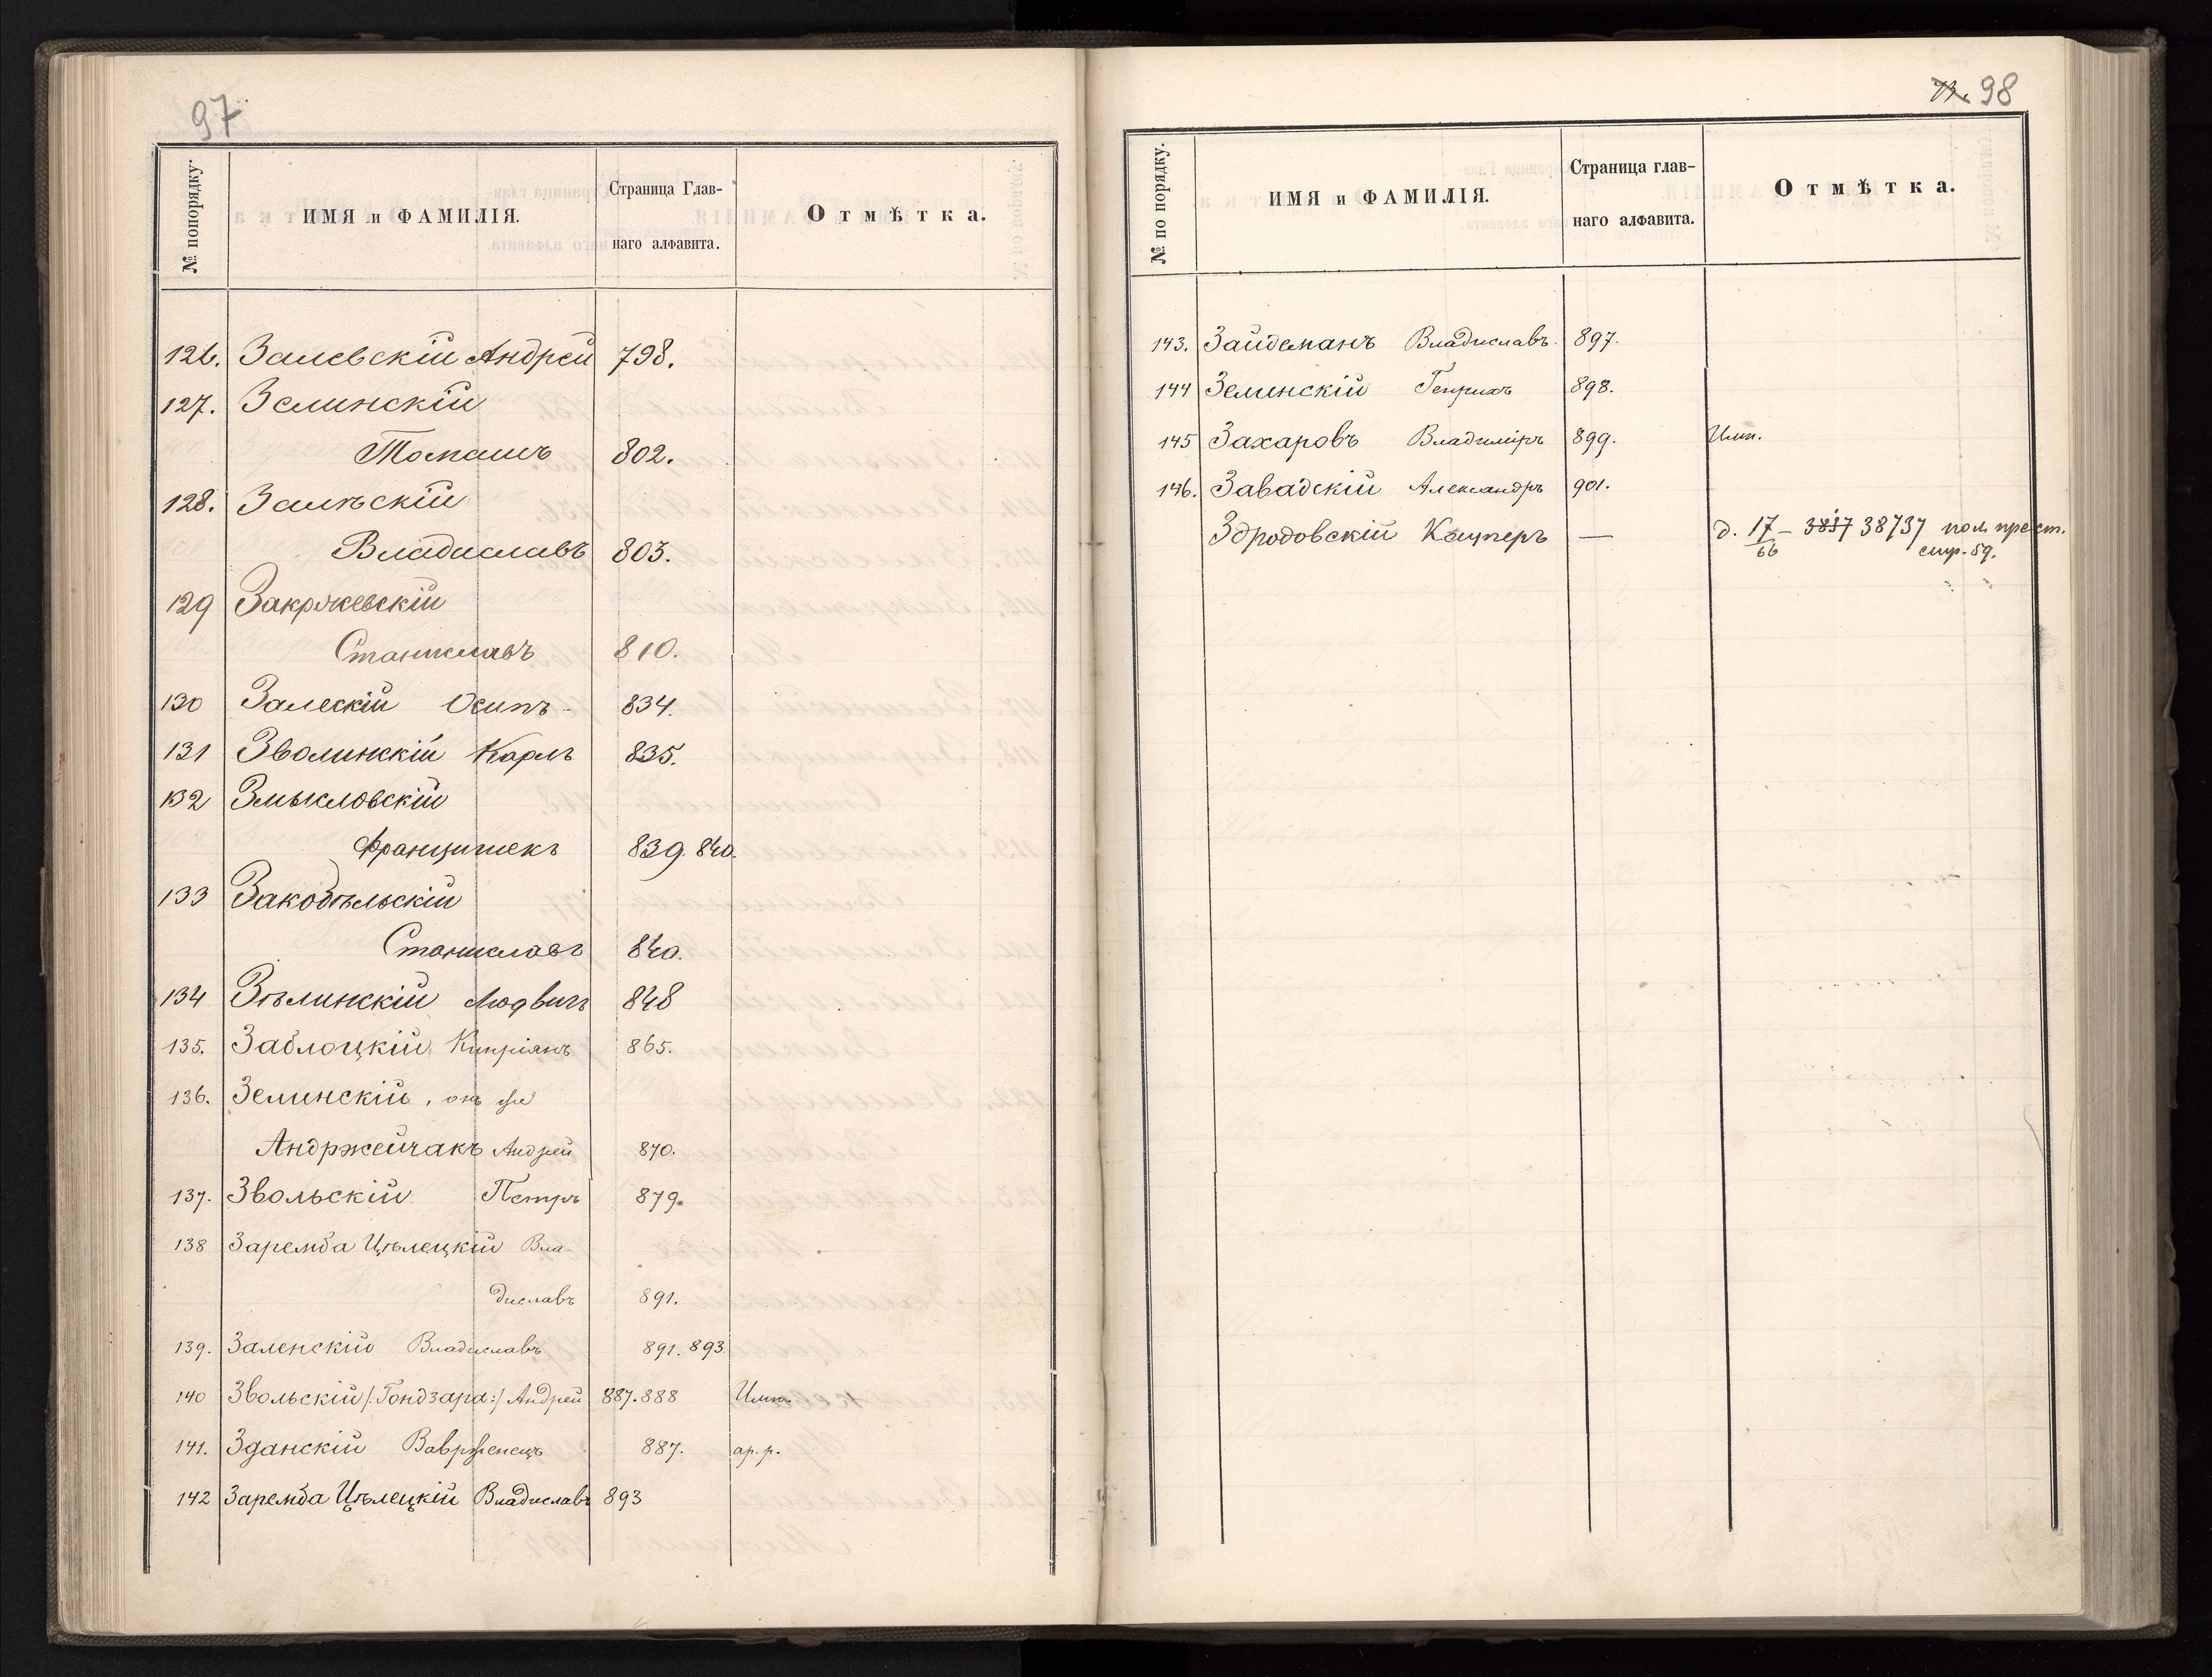 97
№ попорядку.
ИМЯ и ФАМИЛІЯ.
Страница Глав-
наго алфавита.
Отмѣтка.
126. Залевскій Андрей 798.
127. Зелинскій
Томашъ 802.
128. Залѣскій
Владиславъ 803.
129 Закржевскій
Станиславъ 810.
130 Залескій Осипъ 834.
131 Зволинскій Карлъ 835.
132 Змысловскій
Францишекъ 839. 840.
133 Закобѣльскій
Станиславъ 840.
134 Зѣлинскій Людвигъ 848
135. Заблоцкій Кипріянъ 865.
136. Зелинскій, онъ же
Андржейчакъ Андрей 870.
137. Звольскій Петръ 879.
138 Заремба Цѣлецкій Вла-
диславъ 891.
139. Заленскій Владиславъ 891. 893
140 Звольскій /:Гондзара:/ Андрей 887. 888 Имп.
141. Зданскій Ваврженецъ 887. ар. р.
142 Заремба Цѣлецкій Владиславъ 893
98
№ по порядку.
ИМЯ и ФАМИЛІЯ.
Страница глав-
наго алфавита.
Отмѣтка.
143. Зайдеманъ Владиславъ. 897.
144 Зелинскій Генрихъ 898.
145 Захаровъ Владиміръ 899. Имп.
146. Завадскій Александръ 901.
Здродовскій Кацперъ — д. 17/66 – 3837 38737 пол. прест.
стр. 59.